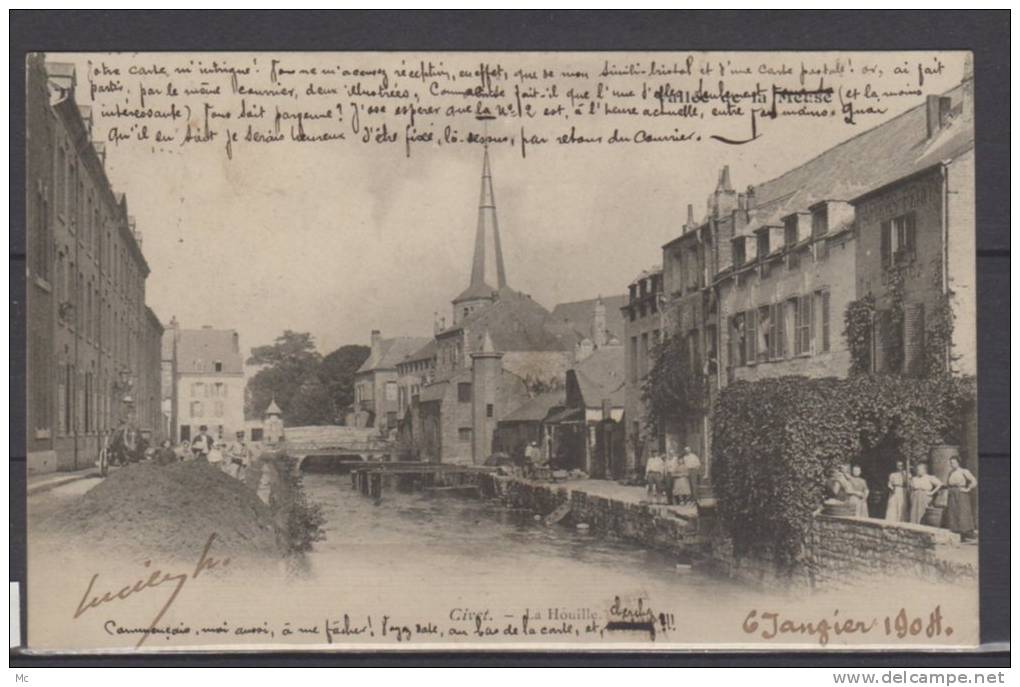 Votre carte m'intrigue! Vous ne m'accusez réception, en effet, que de mon simili-bristol et d'une carte postale! or, ai fait
partir, par le même courrier, deux illustrées, Comment se fait-il que l'une d'elles seulement (et la moins
Vallée de la Meuse
intéressante) Vous soit parvenue? J'ose espérer que la Nº 2 est, à l'heure actuelle, entre vos mains. Quoi
qu'il en soit je serais heureux d'être fixé, là-dessus, par retour du Courrier.
Givet. - La Houille.
Commençais, moi aussi, à me fâcher! Voyez date, au bas de la carte, et, !!!
6 Janvier 1908.
Mc
www.delcampe.net